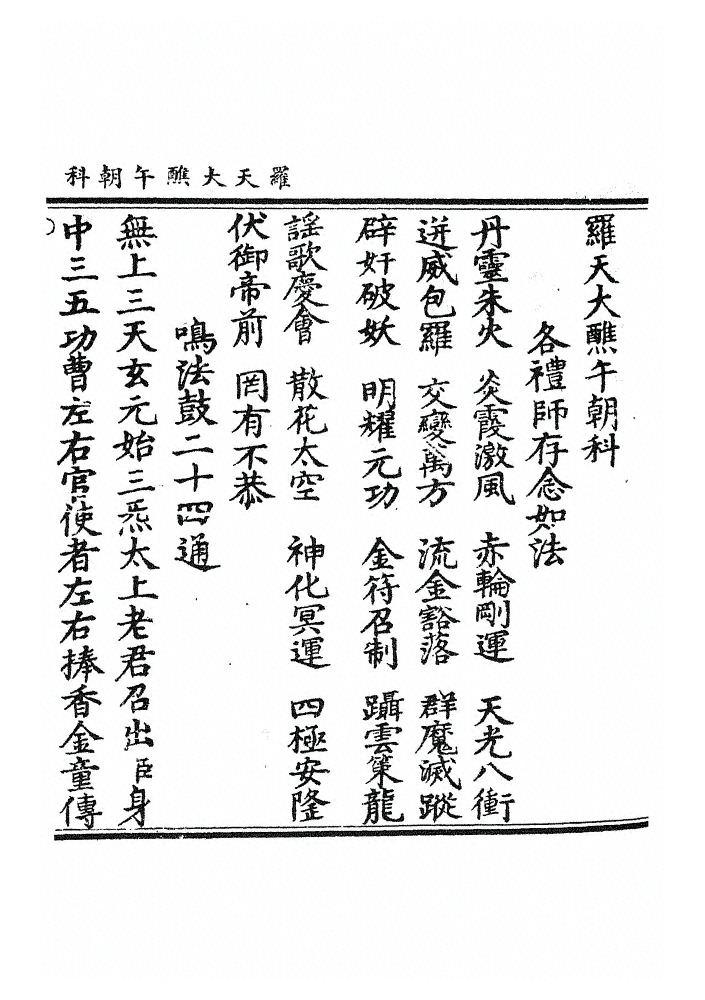 羅天大醮午朝科
羅天大醮午朝科
各禮師存念如法
丹靈朱火　炎霞激風　赤輪剛運　天光八衝
迸威包羅　交變萬方　流金豁落　群魔滅蹤
辟奸破妖　明耀元功　金符召制　躡雲策龍
謡歌慶會　散花太空　神化冥運　四極安隆
伏御帝前　罔有不恭
鳴法鼓二十四通
無上三天玄元始三炁太上老君召出臣身
中三五功曹左右官使者左右捧香金童傳